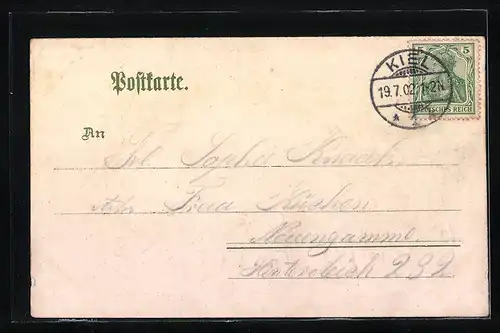 Postkarte.
5
KIEL
19.7.02. 1-2N.
DEUTSCHES REICH
An
Frl. Sophie
Frau
Neuengamme
Hinterdeich 232